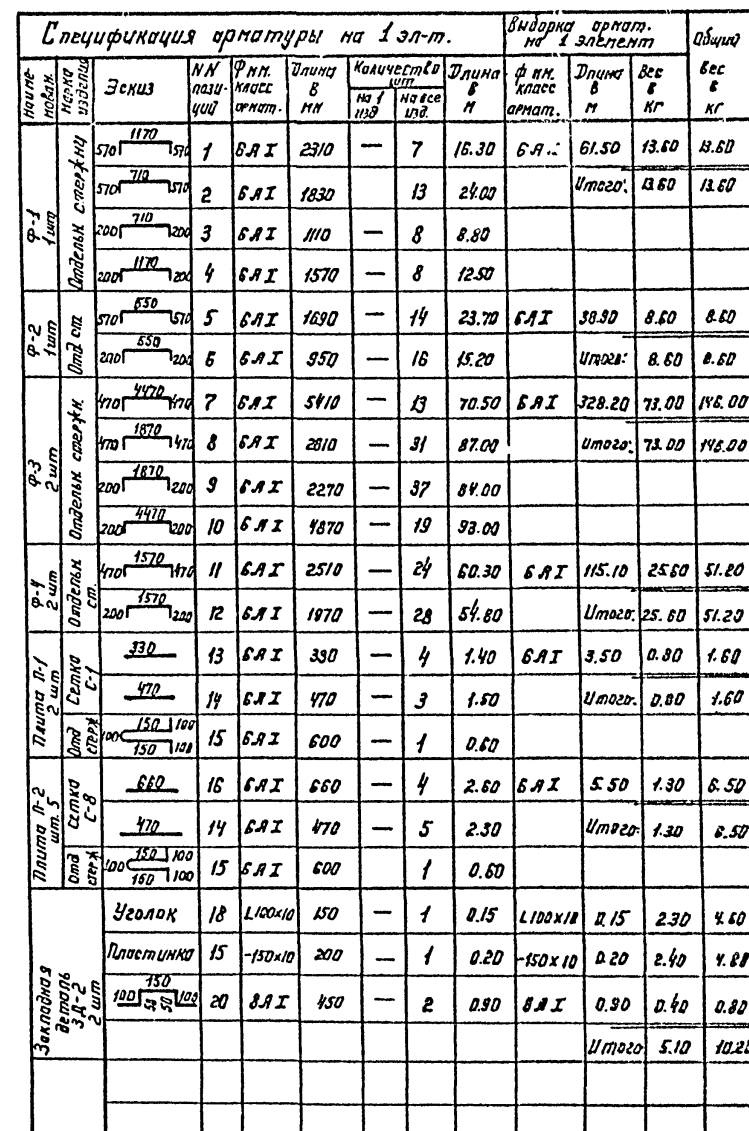 Спецификация арматуры на 1 эл-т.
Выборка армат. на 1 элемент
Общий вес в кг
Наименован.
Марка изделия
Эскиз
NN позиций
Ф мм. класс армат.
Длина в мм
Количество шт
на 1 изд
на все изд.
Длина в м
ф мм. класс армат.
Длина в м
Вес в кг
Ф-1 1 шт
Отдельн. стержни
570 1170 570 1 6AI 2310 — 7 16.30 6A 61.50 13.60 13.60
570 710 570 2 6AI 1830 13 24.00 Итого: 13.60 13.60
200 710 200 3 6AI 1110 — 8 8.80
200 1170 200 4 6AI 1570 — 8 12.50
Ф-2 1 шт
Отд ст
570 550 570 5 6AI 1690 — 14 23.70 6AI 38.90 8.60 8.60
200 550 200 6 6AI 950 — 16 15.20 Итого: 8.60 8.60
Ф-3 2 шт
Отдельн. стержн.
470 4470 470 7 6AI 5410 — 13 70.50 6AI 328.20 73.00 146.00
470 1870 470 8 6AI 2810 — 31 87.00 Итого: 73.00 146.00
200 1870 200 9 6AI 2270 — 37 84.00
200 4470 200 10 6AI 4870 — 19 93.00
Ф-4 2 шт
Отдельн ст.
470 1570 470 11 6AI 2510 — 24 60.30 6AI 115.10 25.60 51.20
200 1570 200 12 6AI 1970 — 28 54.80 Итого: 25.60 51.20
Плита П-1 2 шт
Сетка С-1
330 13 6AI 330 — 4 1.40 6AI 3.50 0.80 1.60
470 14 6AI 470 — 3 1.50 Итого: 0.80 1.60
Отд стерж
100 150 100 150 100 15 6AI 600 — 1 0.60
Плита П-2 шт. 5
Сетка С-8
660 16 6AI 660 — 4 2.60 6AI 5.50 1.30 6.50
470 14 6AI 470 — 5 2.30 Итого: 1.30 6.50
Отд стерж
100 150 100 160 100 15 6AI 600 1 0.60
Закладная деталь ЗД-2 2 шт
Уголок 18 L100x10 150 — 1 0.15 L100x10 0.15 2.30 4.60
Пластинка 15 -150x10 200 — 1 0.20 -150x10 0.20 2.40 4.80
100 150 50 50 100 20 8AI 450 — 2 0.90 8AI 0.90 0.40 0.80
Итого 5.10 10.20